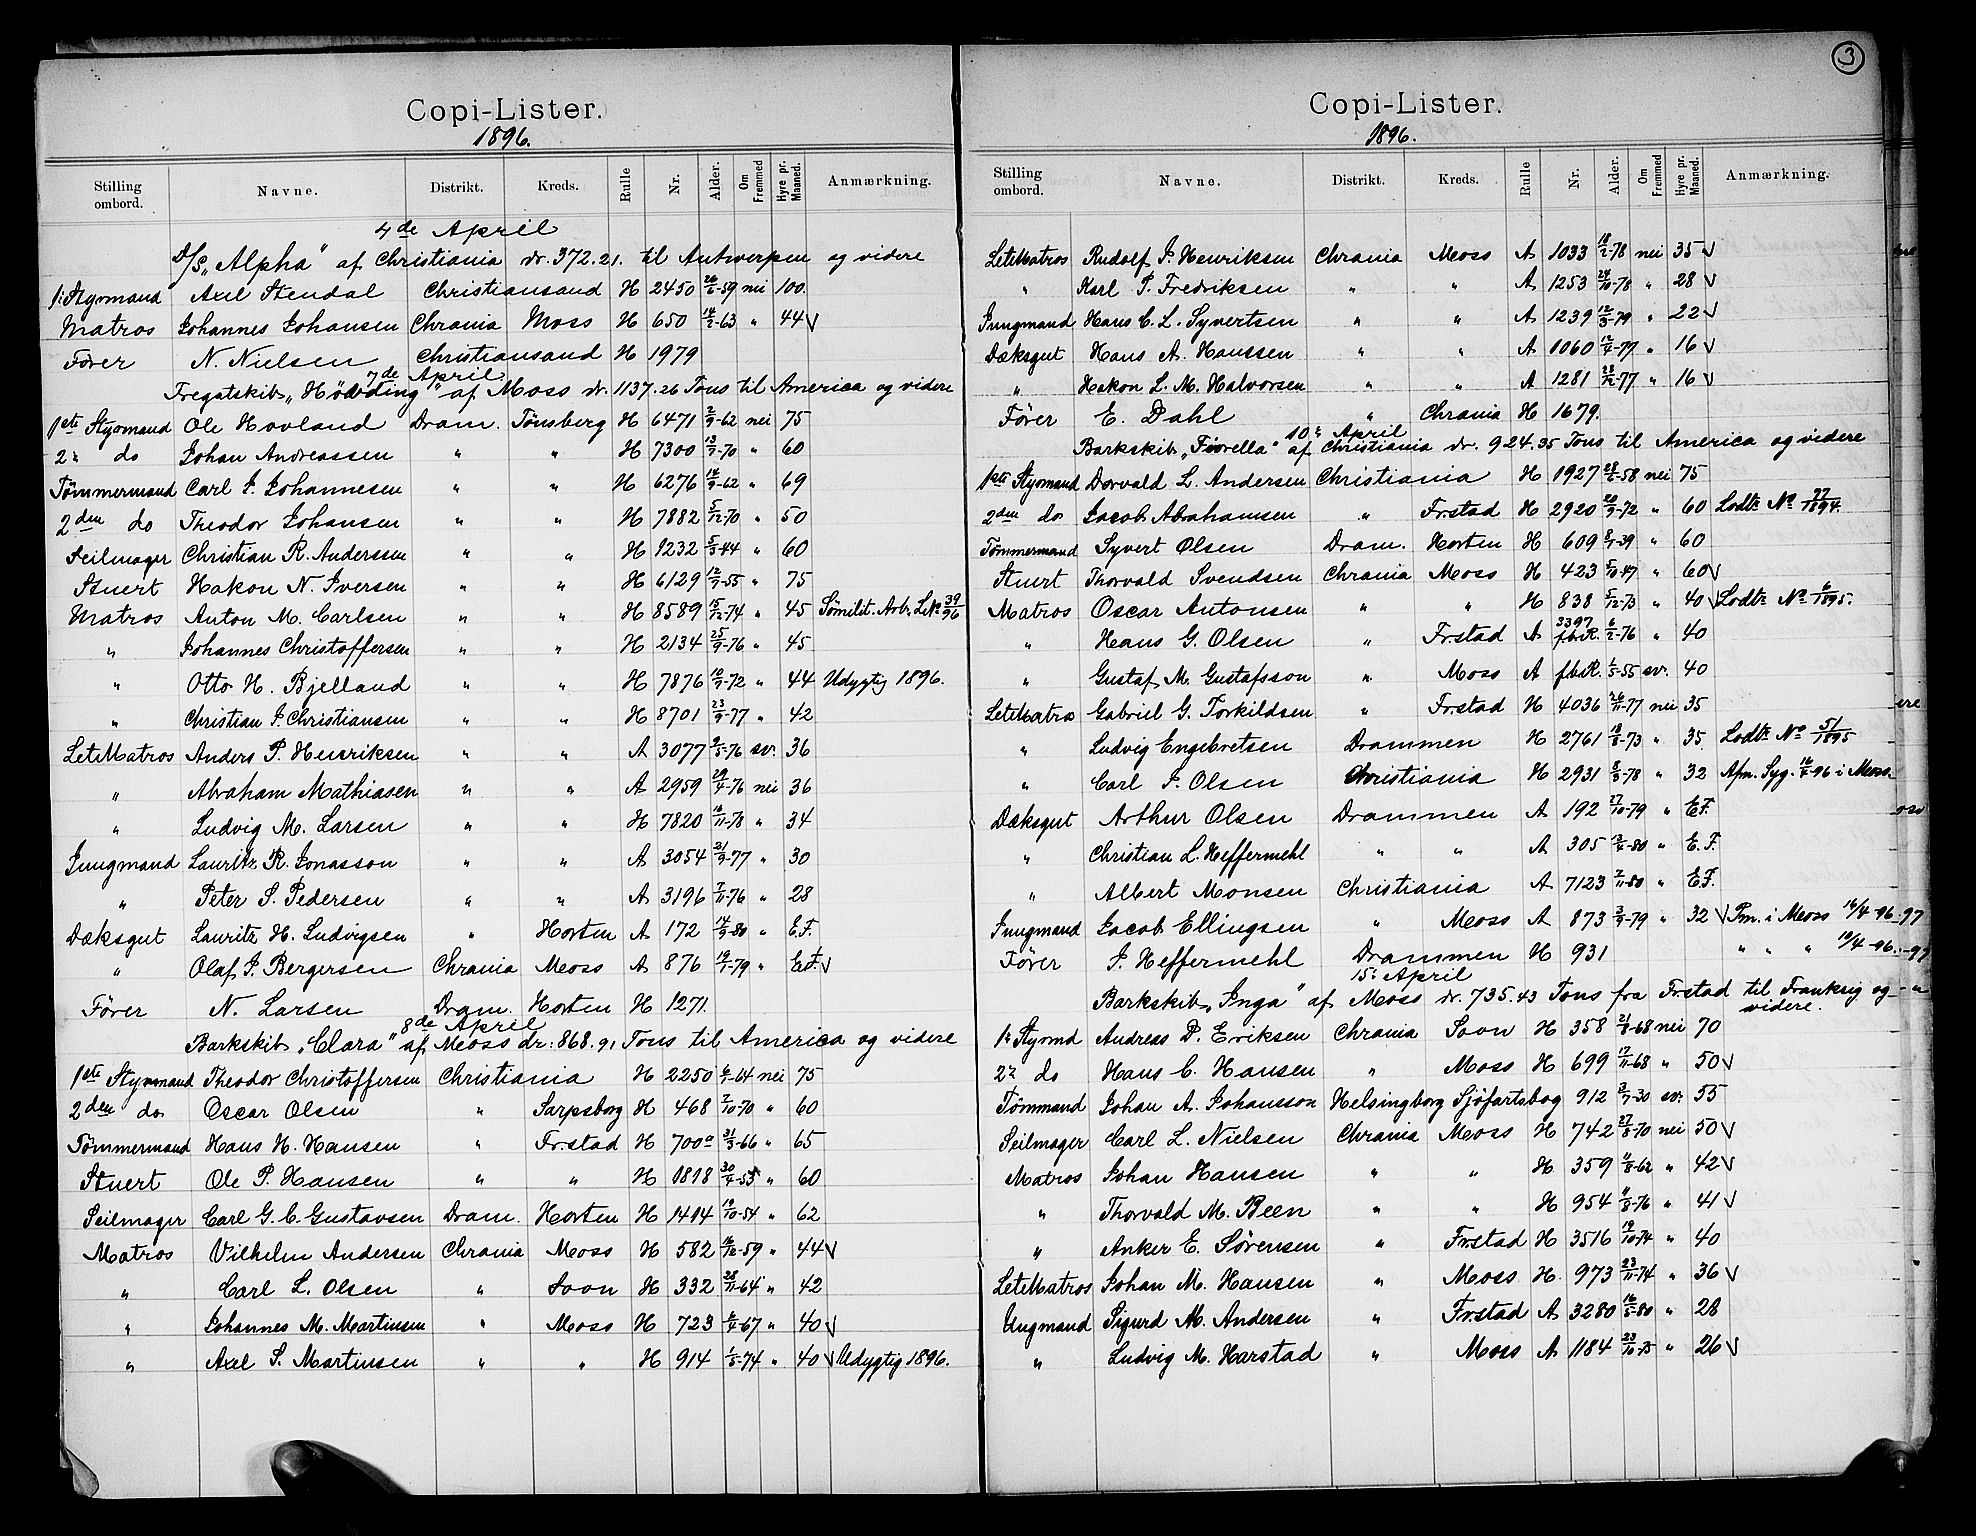 Copi-Lister.
1896.
Stilling ombord. Navne. Distrikt. Kreds. Rulle Nr. Alder. Om Fremmed Hyre pr. Maaned. Anmærkning.
4de April
D/S „Alpha" af Christiania dr. 372.21. til Antwerpen og videre
1: Styrmand Axel Stendal Christiansand H 2450 26/6-59 nei 100.
Matros Johannes Johansen Chrania Moss H 650 14/2-63 " 44 √
Fører N. Nielsen Christiansand H 1979
7de April
Fregatskib „Hövding" af Moss dr. 1137.26 Tons til America og videre
1ste Styrmand Ole Hovland Dram. Tönsberg H 6471 2/9-62 nei 75
2: do Johan Andreassen " " H 7300 13/7-70 " 60
Tömmermand Carl J. Johannesen " " H 6276 14/9-62 " 69
2den do Theodor Johansen " " H 7882 5/12-70 " 50
Seilmager Christian R. Anderssen " " H 1232 5/3-44 " 60
Stuert Hakon N. Iversen " " H 6129 12/7-55 " 75
Matros Anton M. Carlsen " " H 8589 15/12-74 " 45 Sömilit. Arb. L. No 39/96
" Johannes Christoffersen " " H 2134 25/9-76 " 45
" Otto H. Bjelland " " H 7876 10/7-72 " 44 Udygtig 1896.
" Christian J. Christiansen " " H 8701 23/9-77 " 42
LetMatros Anders P. Henriksen " " A 3077 9/5-76 sv. 36
" Abraham Mathiasen " " A 2959 29/4-76 nei 36
" Ludvig M. Larsen " " H 7820 16/11-78 " 34
Jungmand Lauritz R. Jonasson " " A 3054 21/9-77 " 30
" Peter S. Pedersen " " A 3196 7/11-76 " 28
Dæksgut Lauritz H. Ludvigsen " Horten A 172 14/9-80 " E.F.
" Olaf J. Bergersen Chrania Moss A 876 19/1-79 " E.F. √
Förer N. Larsen Dram. Horten H 1271.
8de April
Barkskib „Clara" af Moss dr: 868.91 Tons til America og videre
1ste Styrmand Theodor Christoffersen Christiania H 2250 6/1-64 nei 75
2den do. Oscar Olsen " Sarpsborg H 468 7/10-70 " 60
Tömmermand Hans H. Hansen " Fr.stad H 7000 31/3-66 " 65
Stuert Ole P. Hansen " " H 1818 30/4-53 " 60
Seilmager Carl G. C. Gustavsen Dram. Horten H 1414 19/10-54 " 62
Matros Vilhelm Andersen Chrania Moss H 582 16/12-59 " 44 √
" Carl L. Olsen " Soon H 332 28/11-64 " 42
" Johannes M. Martinsen " Moss H 723 6/4-67 " 40 √
" Axel S. Martinsen " " H 914 1/5-74 " 40 √ Udygtig 1896.
3
Copi-Lister.
1896.
Stilling ombord. Navne. Distrikt. Kreds. Rulle Nr. Alder. Om Fremmed Hyre pr. Maaned. Anmærkning.
LetMatros Rudolf J. Henriksen Chrania Moss A 1033 18/2-78 nei 35 √
" Karl P. Fredriksen " " A 1253 24/10-78 " 28 √
Jungmand Hans C. L. Syvertsen " " A 1239 12/3-79 " 22 √
Dæksgut Hans A. Hanssen " " A 1060 12/4-77 " 16 √
" Hakon L. M. Halvorsen " " A 1281 28/12-77 " 16 √
Förer E. Dahl " Chrania H 1679.
10: April
Barkskib „Fiorella" af Christiania dr. 924.35 Tons til America og videre
1ste Styrmand Dorvald L. Andersen Christiania H 1927 28/6-58 nei 75
2den do. Jacob Abrahamsen " Fr.stad H 2920 20/9-72 " 60 Lodts. No 77/1894.
Tömmermand Syvert Olsen Dram. Horten H 609 8/1-39 " 60
Stuert Thorvald Svendsen Chrania Moss H 423 5/10-47 " 60 √
Matros Oscar Antonsen " " H 838 5/12-73 " 40 √ Lodts No 6/1895.
" Hans G. Olsen " Fr.stad A 3397 f.b.R. 6/2-76 " 40
" Gustaf M. Gustafsson " Moss A f.b.R. 1/5-55 sv. 40
LetMatros Gabriel G. Torkildsen " Fr.stad H 4036 26/11-77 nei 35
" Ludvig Engebretsen Drammen H 2761 18/8-73 " 35 Lodts No 51/1895
" Carl J. Olsen Christiania H 2931 8/3-78 " 32 Afm. Syg. 16/4-96 i Moss.
Dæksgut Arthur Olsen Drammen A 192 27/10-79 " E.F.
" Christian L. Heffermehl " " A 305 13/4-80 " E.F.
" Albert Monsen Christiania A 7123 7/11-80 " E.F.
Jungmand Jacob Ellingsen " Moss A 873 3/9-79 " 32 √ Pm. i Moss 16/4-96-97
Förer J. Heffermehl Drammen H 931 " " " 10/4-96.-97
15: April
Barkskib „Inga" af Moss dr. 735.43 Tons fra Fr.stad til Frankrig og videre.
1: Styrmd Andreas P. Eriksen Chrania Soon H 358 21/8-68 nei 70
2: do Hans C. Hansen " Moss H 699 17/11-68 " 50 √
Tömmand Johan A. Johansson Helsingborg Sjöfartsbog 912 3/7-30 sv. 55
Seilmager Carl L. Nielsen Chrania Moss H 742 27/8-70 nei 50 √
Matros Johan Hansen " " H 359 11/8-62 " 42 √
" Thorvald M. Been " " H 954 11/8-76 " 41 √
" Anker E. Sørensen " Fr.stad H 3516 19/10-74 " 40
LetMatros Johan M. Hansen " Moss H. 973 23/11-74 " 36 √
Ungmand Sigurd M. Andersen " Fr.stad A 3280 16/5-80 " 28
" Ludvig M. Harstad " Moss A 1184 23/10-75 " 26 √